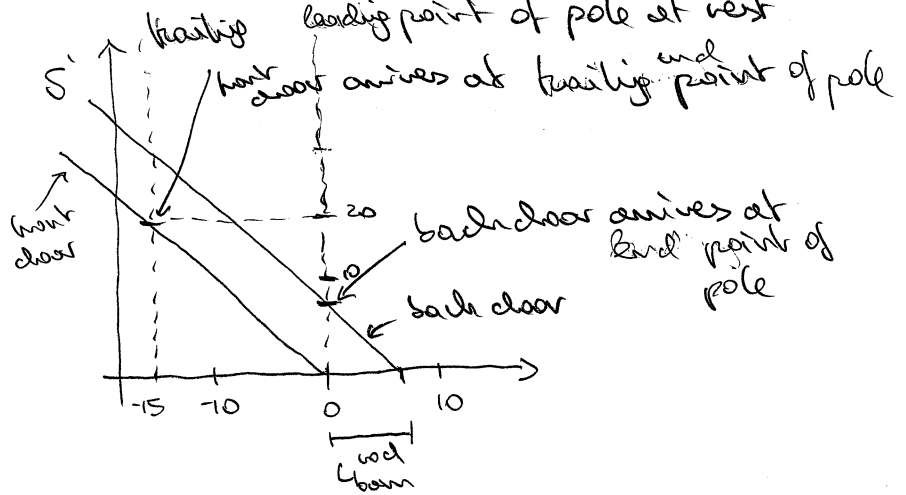 trailing leading point of pole at rest
S'
front door arrives at trailing end point of pole
front door
20
back door arrives at
lead point of
pole
10
back door
-15 -10 0 10
barn